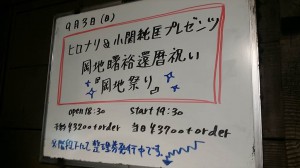 9月3日(日)
ヒロナリ&小関純匡プレゼンツ
岡地曙裕還暦祝い
『岡地祭り』
open 18:30 start 19:30
4300+order 当日4800+order
整理券発行中です。